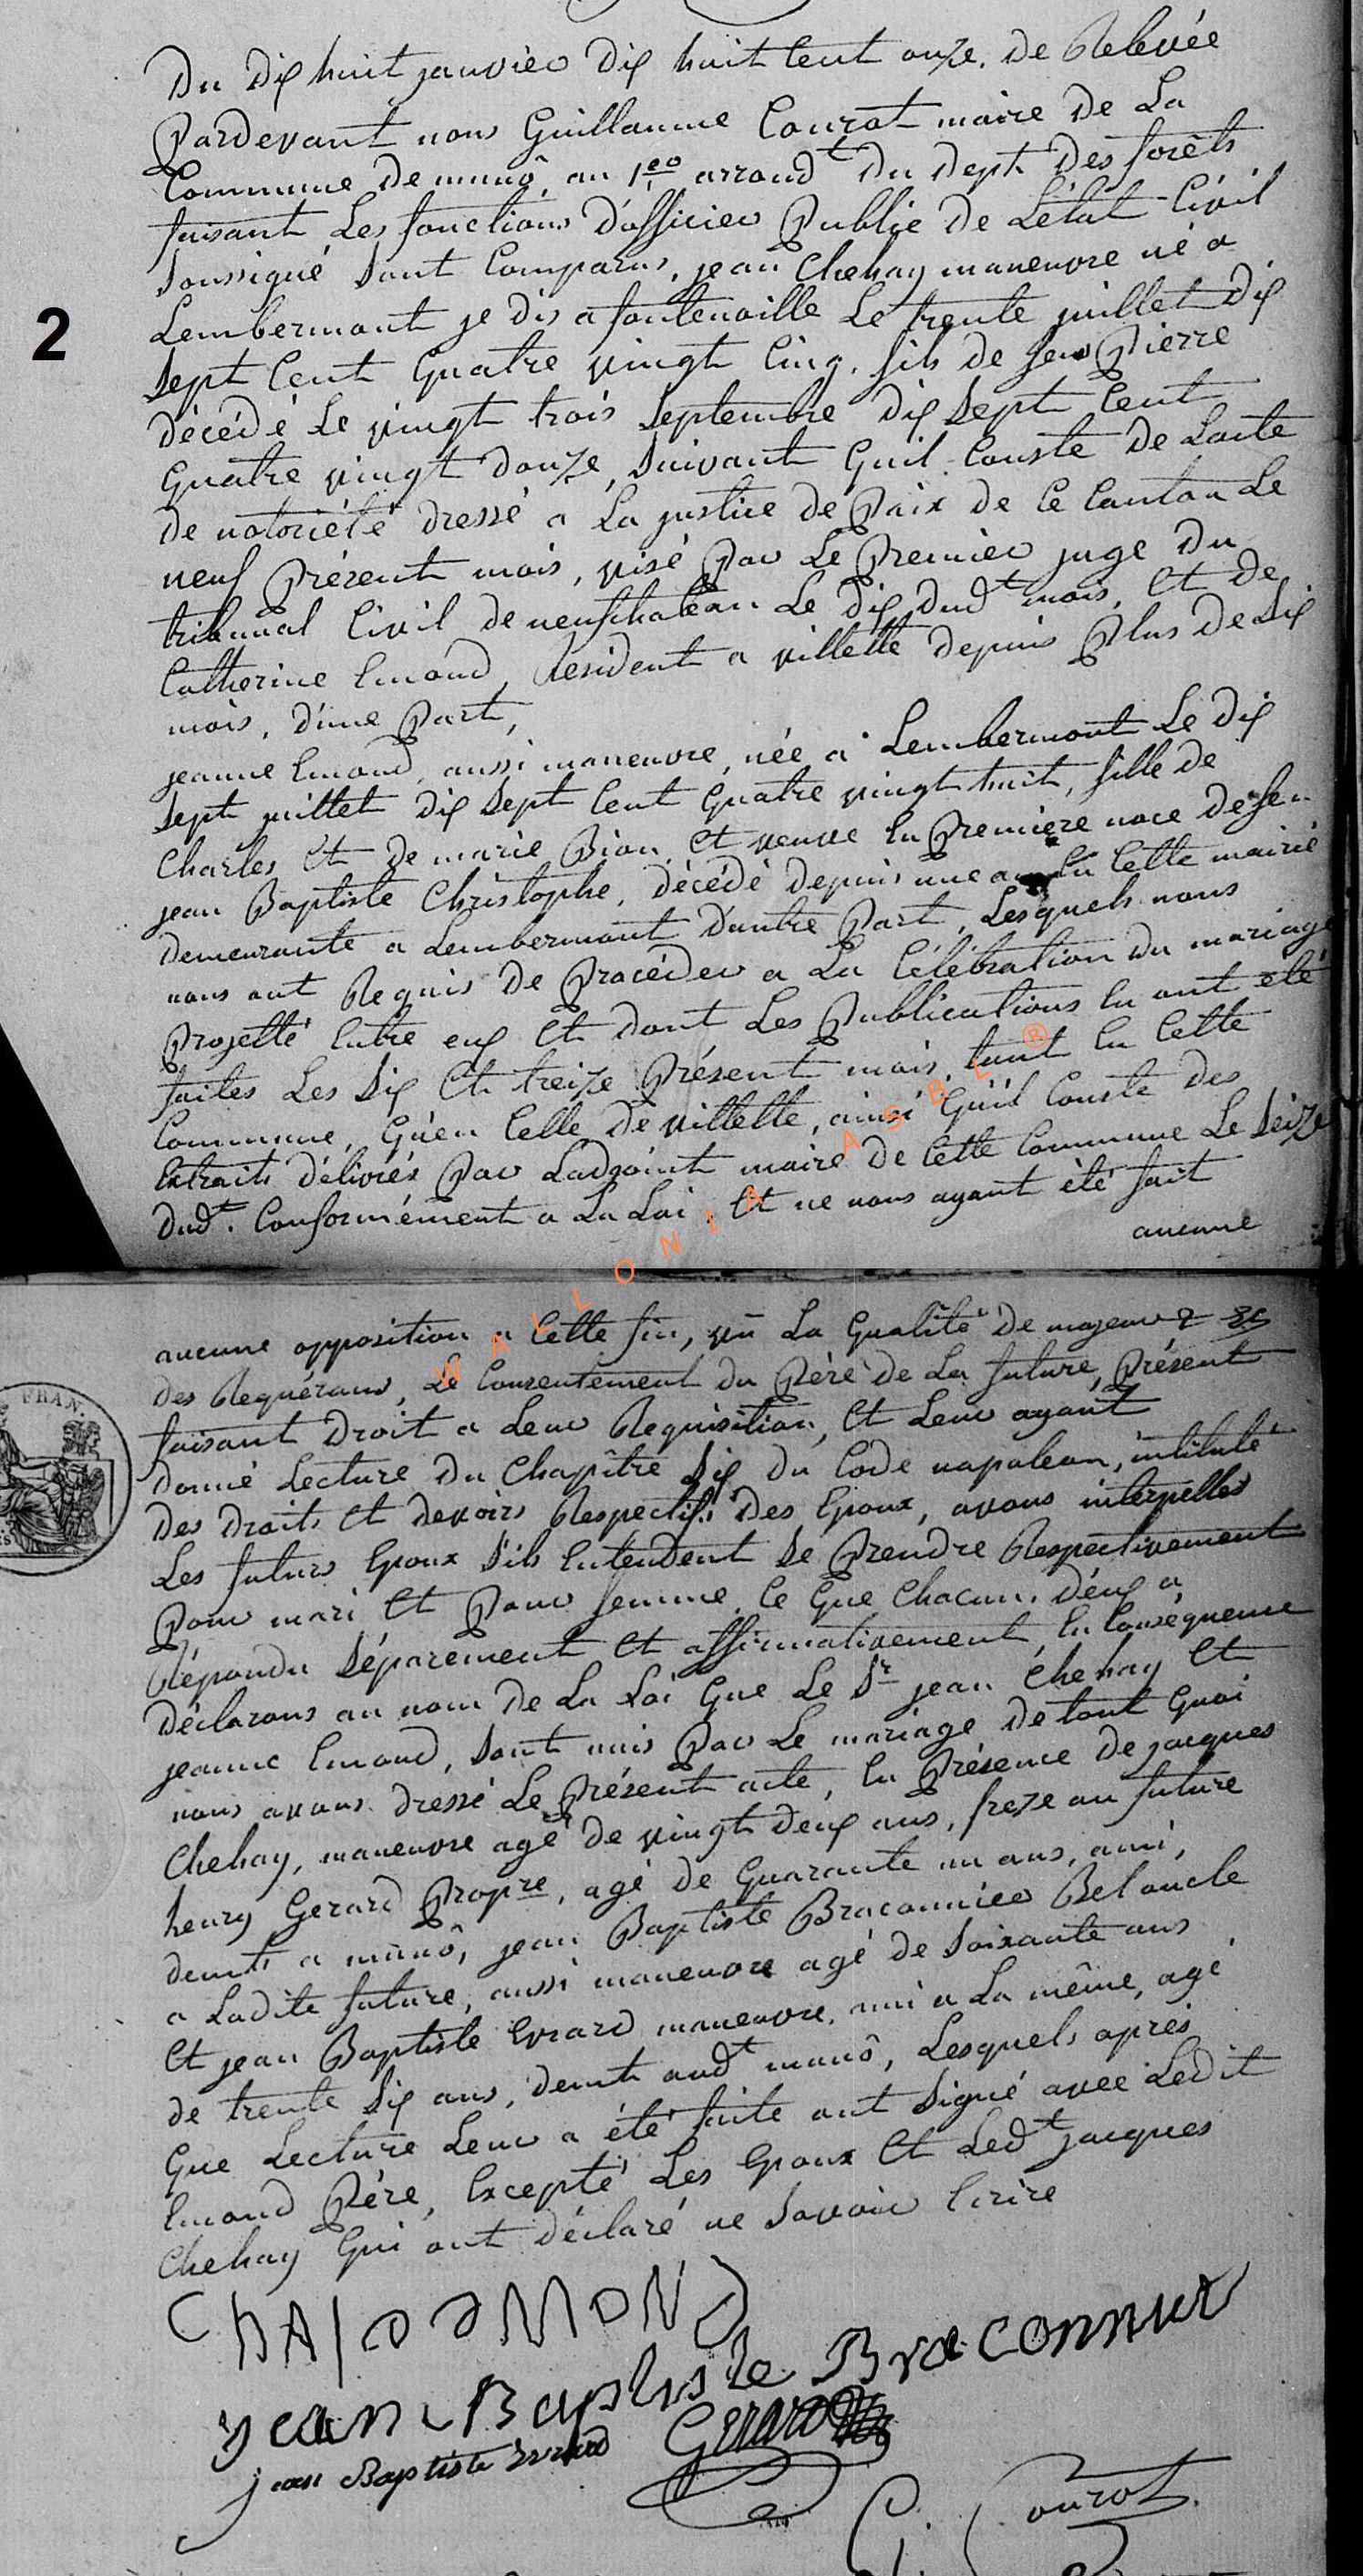 Du dix huit janvier dix huit cent onze. de Relevée
Pardevant nous Guillaume Courot maire de La
Commune de munô, au 1er arrondt du dept des forêts
faisant Les fonctions d'officier Public de L'état Civil
Soussigné Sont Comparus, jean Chehay maneuvre né a
Lembermont je dis a fontenoille Le trente juillet dix
2
Sept Cent Quatre vingt Cinq. fils de feu Pierre
décédé Le vingt trois Septembre dix Sept Cent
Quatre vingt douze, Suivant Quil Conste de Lacte
de notoriété dressé a La justice de Paix de Ce Canton Le
neuf Présent mois, visé Par Le Premier juge du
tribunal Civil de neufchateau Le dix dudt mois, Et de
Catherine Emond, Resident a villette depuis Plus de Six
mois, d'une Part,
jeanne Emond, aussi maneuvre, née a Lembermont Le dix
Sept juillet dix Sept Cent Quatre vingt huit, fille de
Charles Et de marie Bion Et veuve En Premiere noce de feu
jean Baptiste Christophe, décédé depuis une an En Cette mairie
demeurante a Lembermont d'autre Part, Lesquels nous
nous ont Requis de Procéder a La Célébration du mariage
Projetté Entre eux Et dont Les Publications En ont été
faites Les Six Et treize Présent mois, tant En Cette
Commune, Qu'en Celle de villette, ainsi Quil Conste des
Extraits délivrés Par Ladjoint maire de Cette Commune Le Seize
dudt. Conformément a La Loi, Et ne nous ayant été fait
aucune
aucune opposition a Cette fin, vu La Qualité de majeur
des Requérans, Le Consentement du Père de La future, Présent
FRAN.
faisant droit a Leur Requisition, Et Leur ayant
donné Lecture du Chapître Six du Code napoleon, intitulé
des droits Et devoirs Respectifs des Epoux, avons interpellés
Les futurs Epoux S'ils Entendent Se Prendre Respectivement
Pour mari Et Pour femme, Ce Que Chacun. d'eux a
Répondu Séparement Et affirmativement, En Conséquence
déclarons au nom de La Loi Que Le Sr jean Chehay Et
jeanne Emond, Sont unis Par Le mariage de tout Quoi
nous avons dressé Le Présent acte, En Présence de jacques
Chehay, maneuvre agé de vingt deux ans, freze au future
henry Gerard Propre, agé de Quarante un ans, ami,
demts a munô, jean Baptiste Braconnier Bel oncle
a Ladite future, aussi maneuvre agé de Soixante ans
Et jean Baptiste Evrard maneuvre, ami a La même, agé
de trente Six ans, demt audt munô, Lesquels après
Que Lecture Leur a été faite ont Signé avec Ledit
Emond Père, Excepté Les Epoux Et Ledt jacques
Chehay Qui ont déclaré ne Savoir Ecrire
jean Baptiste Braconnier
jean Baptiste Evrard Gerard
G. Courot.
WALLONIA ASBL ®